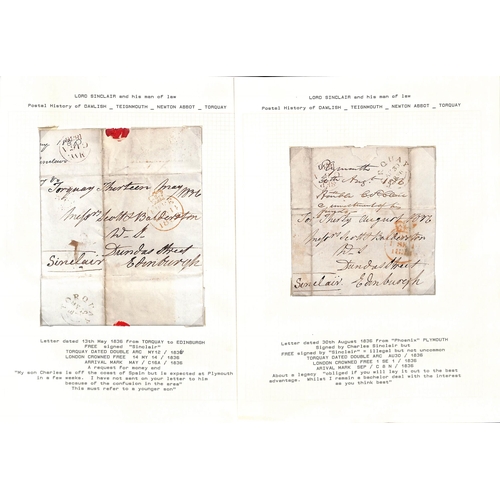 LORD SINCLAIR and his man of law
Postal History of DAWLISH _ TEIGNMOUTH _ NEWTON ABBOT _ TORQUAY
Torquay Thirteen May
1836
Messrs Scott & Balderston
W. S.
Dundas Street
Edinburgh
Sinclair
Letter dated 13th May 1836 From TORQUAY to EDINBURGH
FREE signed "Sinclair"
TORQUAY DATED DOUBLE ARC MY12 / 1836
LONDON CROWNED FREE 14 MY 14 / 1836
ARIVAL MARK MAY / C16A / 1836
A request for money and
"My son Charles is off the coast of Spain but is expected at Plymouth
in a few weeks. I have not sent on your letter to him
because of the confusion in the area"
This must refer to a younger son"
LORD SINCLAIR and his man of law
Postal History of DAWLISH _ TEIGNMOUTH _ NEWTON ABBOT _ TORQUAY
Plymouth
30th Augt 1836
Torquay Thirty August 1836
Messrs Scott & Balderston
W. S.
Dundas Street
Edinburgh
Sinclair
Letter dated 30th August 1836 from "Phoenix" PLYMOUTH
Signed by Charles Sinclair but
FREE signed by "Sinclair" = illegal but not uncommon
TORQUAY DATED DOUBLE ARC AU30 / 1836
LONDON CROWNED FREE 1 SE 1 / 1836
ARIVAL MARK SEP / C & N / 1836
About a legacy "obliged if you will lay it out to the best
advantage. Whilst I remain a bachelor deal with the interest
as you think best"